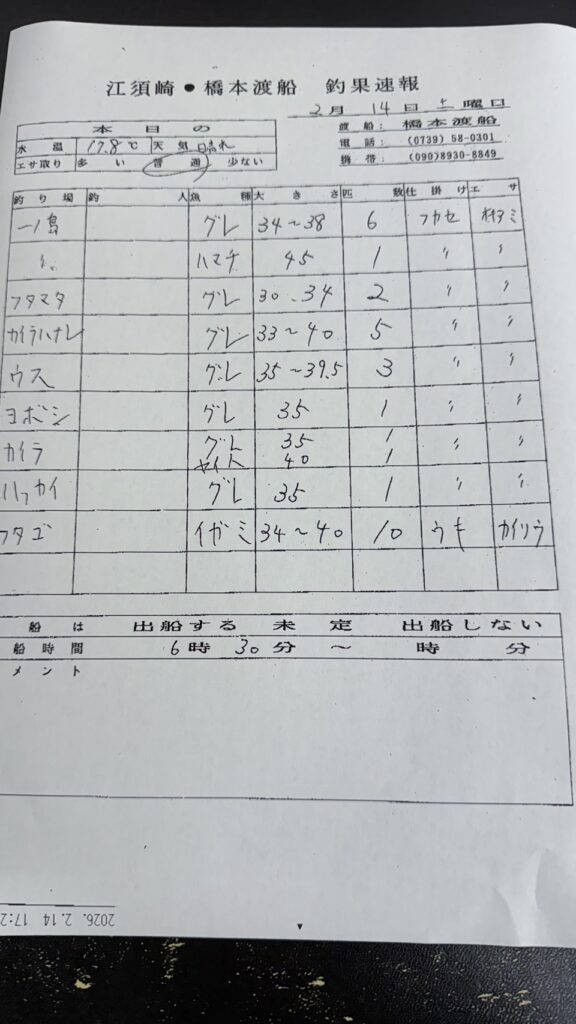 江須崎・橋本渡船 釣果速報
2月 14日 土曜日
本日の
水温 17.8℃ 天気 晴れ
エサ取り 多い 普通 少ない
渡船: 橋本渡船
電話: (0739) 58-0301
携帯: (090)8930-8849
釣り場 釣人 魚種 大きさ 匹数 仕掛け エサ
一ノ島 グレ 34〜38 6 フカセ オキアミ
〃 ハマチ 45 1 〃 〃
フタマタ グレ 30.34 2 〃 〃
カイラハナレ グレ 33〜40 5 〃 〃
ウス グレ 35〜39.5 3 〃 〃
ヨボシ グレ 35 1 〃 〃
カイラ グレ 35 1 〃 〃
ヤイト 40 1
グレ 35 1 〃 〃
フタゴ イガミ 34〜40 10 ウキ カイソウ
船は 出船する 未定 出船しない
船時間 6時 30分 〜 時 分
メント
2026. 2.14 17:2